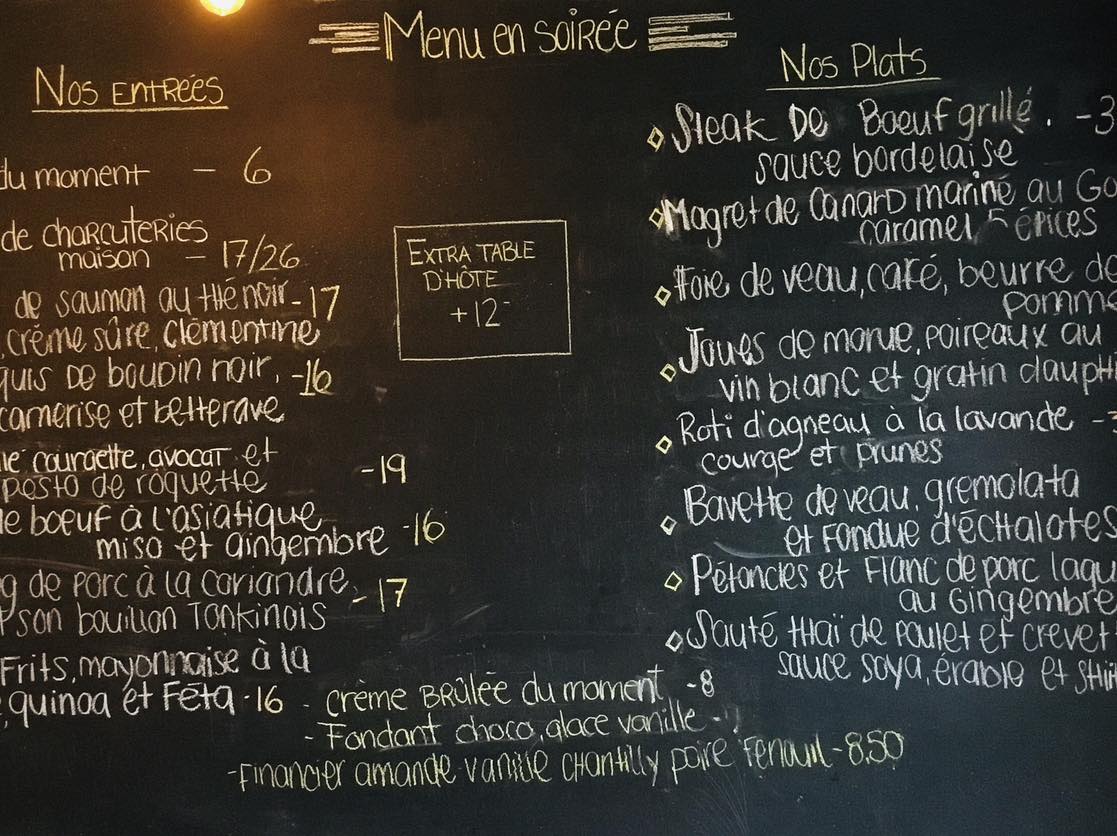 Menu en soirée
Nos Entrées
du moment - 6
de charcuteries
maison - 17/26
de saumon au thé noir - 17
crème sûre, clémentine
quis de boudin noir, - 16
camerise et betterave
courgette, avocat et
pesto de roquette - 19
le boeuf à l'asiatique
miso et gingembre - 16
g de porc à la coriandre,
son bouillon Tonkinois - 17
Frits, mayonnaise à la
, quinoa et Feta - 16
Extra table
d'hôte
+12-
Nos Plats
Steak de Boeuf grillé . - 3
sauce bordelaise
Magret de Canard mariné au Go
caramel 5 épices
Foie de veau, café, beurre de
pomme
Joues de morue, poireaux au
vin blanc et gratin dauph
Roti d'agneau à la lavande -
courge et prunes
Bavette de veau, gremolata
et fondue d'échalotes
Pétoncles et Flanc de porc laqu
au Gingembre
Sauté thaï de poulet et crevet
sauce soya, érable et
- crème Brûlée du moment, - 8
- Fondant choco, glace vanille -
- Financier amande vanille chantilly poire Fenouil - 8.50